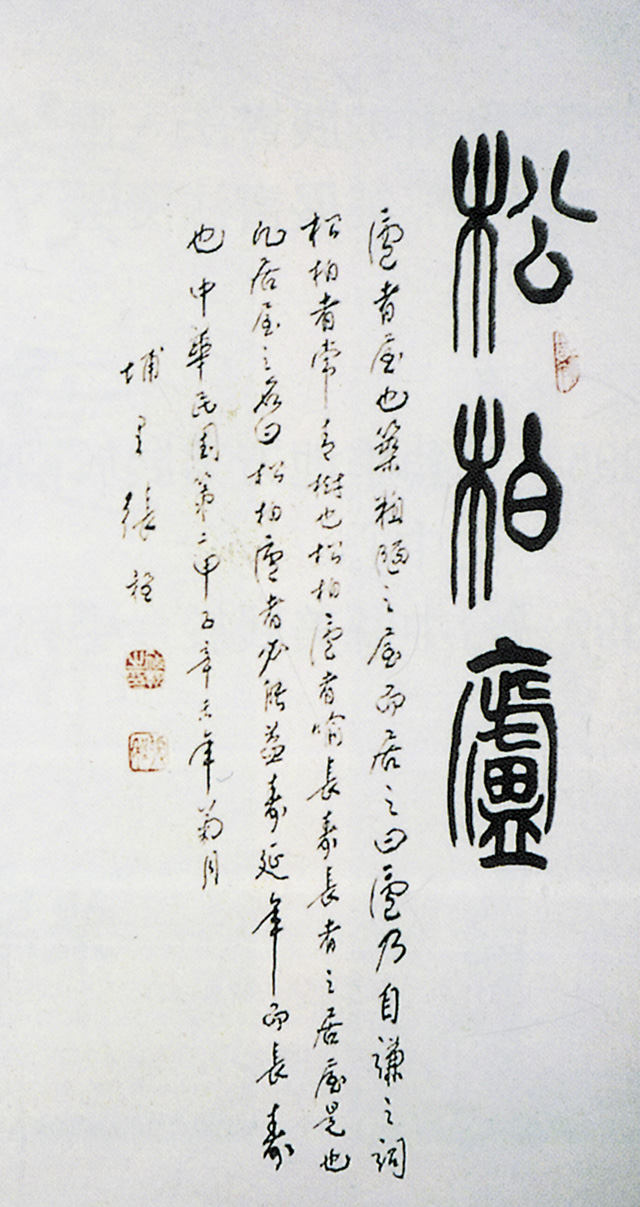 松柏廬
廬者屋也築粗陋之屋而居之曰廬乃自謙之詞
松柏者常青樹也松柏廬者喻長壽長者之居屋是也
凡居屋之名曰松柏廬者必能益壽延年而長壽
也中華民國第二甲子辛未年菊月
埔里張